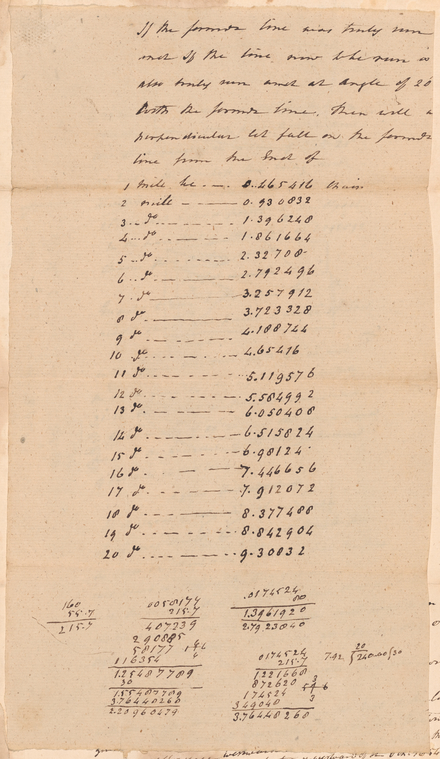 If the former line was truly run
and If the line now to be run is
also truly run and at angle of 20
the former line, then will a
perpendicular let fall on the former
line from the End of
1 mile be - - - 0.465416 Chain
2 mile - - - 0.930832
3 - do - - - 1.396248
4 - do - - - 1.861664
5 - do - - - 2.32708
6 - do - - - 2.792496
7 do - - - 3.257912
8 do - - - 3.723328
9 do - - - 4.188744
10 do - - - 4.65416
11 do - - - 5.119576
12 do - - - 5.584992
13 do - - - 6.050408
14 do - - - 6.515824
15 do - - - 6.98124
16 do - - - 7.446656
17 do - - - 7.912072
18 do - - - 8.377488
19 do - - - 8.842904
20 do - - - 9.30832
160
55.7
215.7
0058174
215.7
407239
290885
58177
116354
1.25487789
30
.0174524
80
1.3961920
2.79.23840
0174524
215.7
1221668
872620
174524
349040
3.76448260
20
7.92 240.00 30